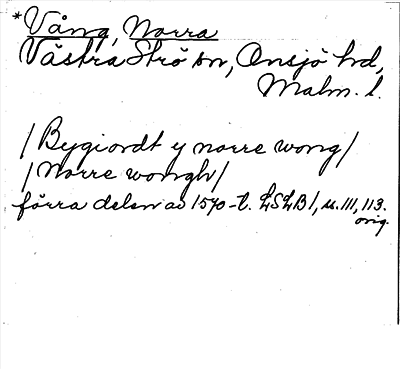 *Vång, Norra
Västra Strö sn, Onsjö hd,
Malm. l.
/Bygiordt y norre wong/
/Norre wongh/
förra delen av 1570-t. LSLB1, s. 111, 113.
orig.